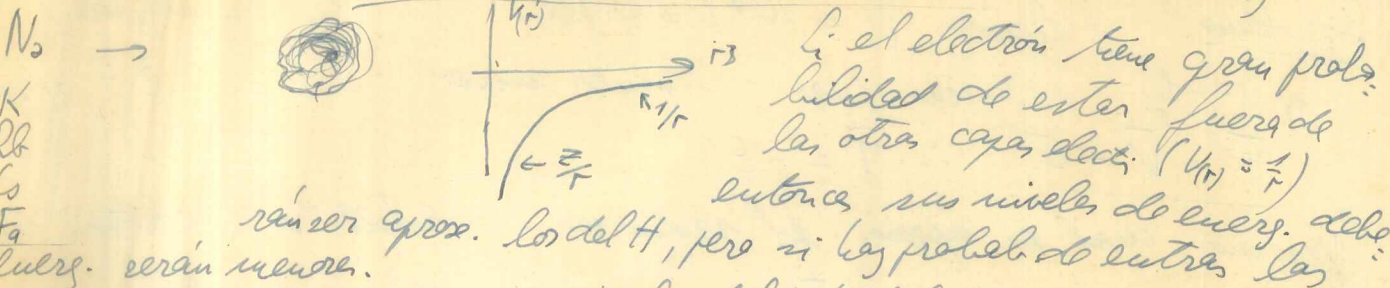 Na →
K
Rb
Cs
Fa
V(r)
r
1/r
← Z/r
Si el electrón tiene gran proba=
bilidad de estar fuera de
las otras capas elect. (V(r) = 1/r)
entonces sus niveles de energ. debe=
rán ser aprox. los del H, pero si hay probab. de entrar las
energ. serán menores.